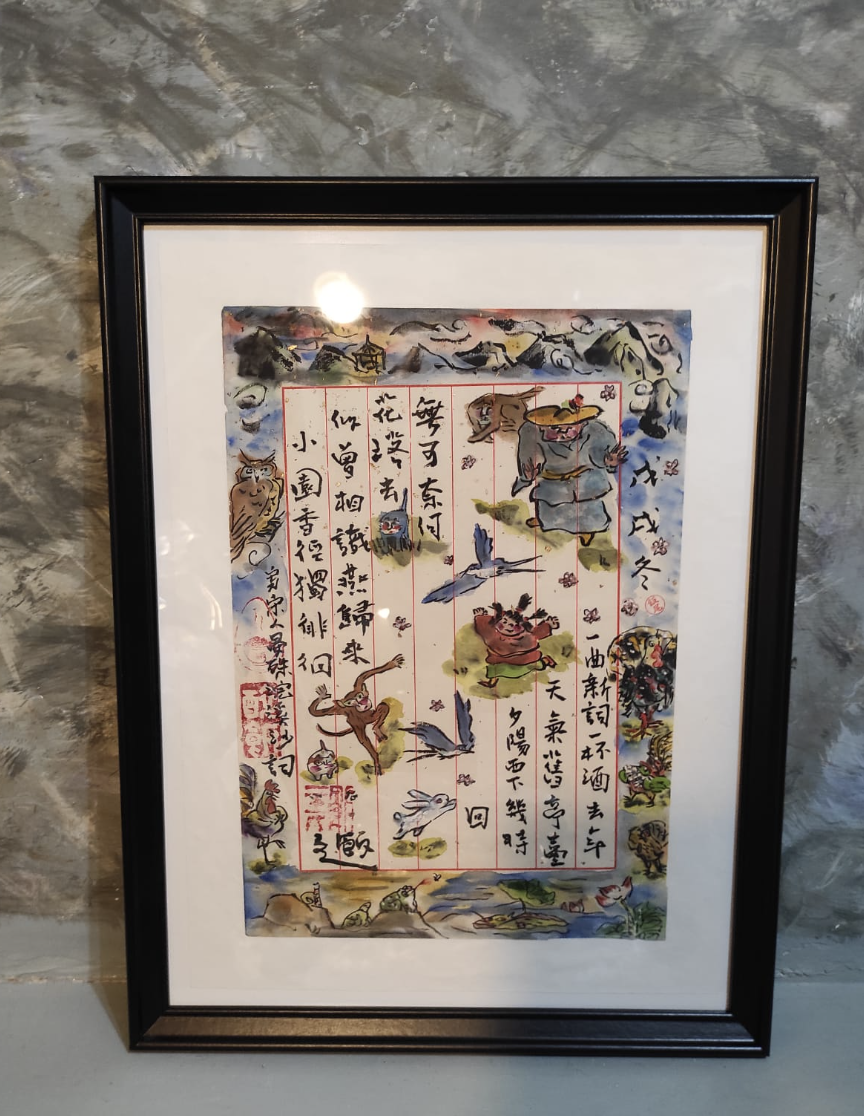 戊戌冬
一曲新詞一杯酒去年
天氣舊亭臺
夕陽西下幾時
回
無可奈何
花落去
似曾相識燕歸來
小園香徑獨徘徊
晏殊浣溪沙詞